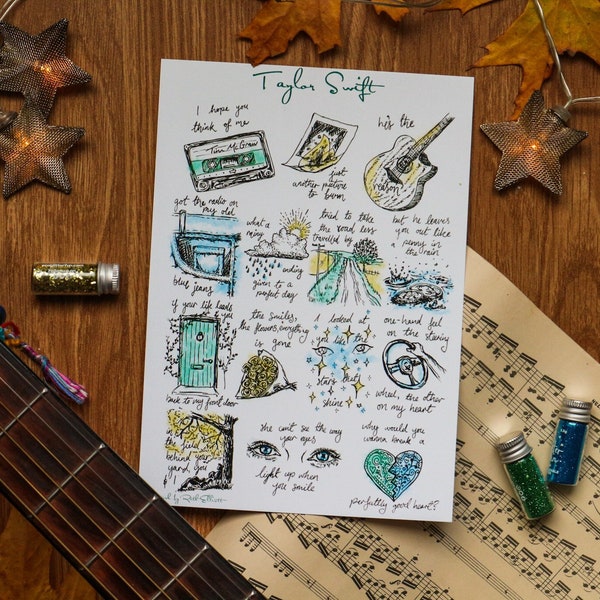 Taylor Swift
I hope you
think of me
Tim McGraw
just
another picture
to burn
he's the
reason
got the radio on
my old
blue jeans
what a
rainy
ending
given to a
perfect day
tried to take
the road less
travelled by
but he leaves
you out like
penny in
the rain
if your life leads
you
back to my front door
the smiles,
the flowers, everything
is gone
I looked at
you like the
stars that
shine
one-hand feel
on the steering
wheel, the other
on my heart
the field
behind your
yard, you
& I
she can't see the way
your eyes
light up when
you smile
why would you
wanna break a
perfectly good heart?
by Ruth Elliott